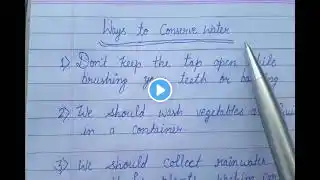 Ways to Conserve water
1) Don't keep the tap open while
brushing teeth or
2) We should wash vegetables
in a container
3) We should collect rainwater
plants